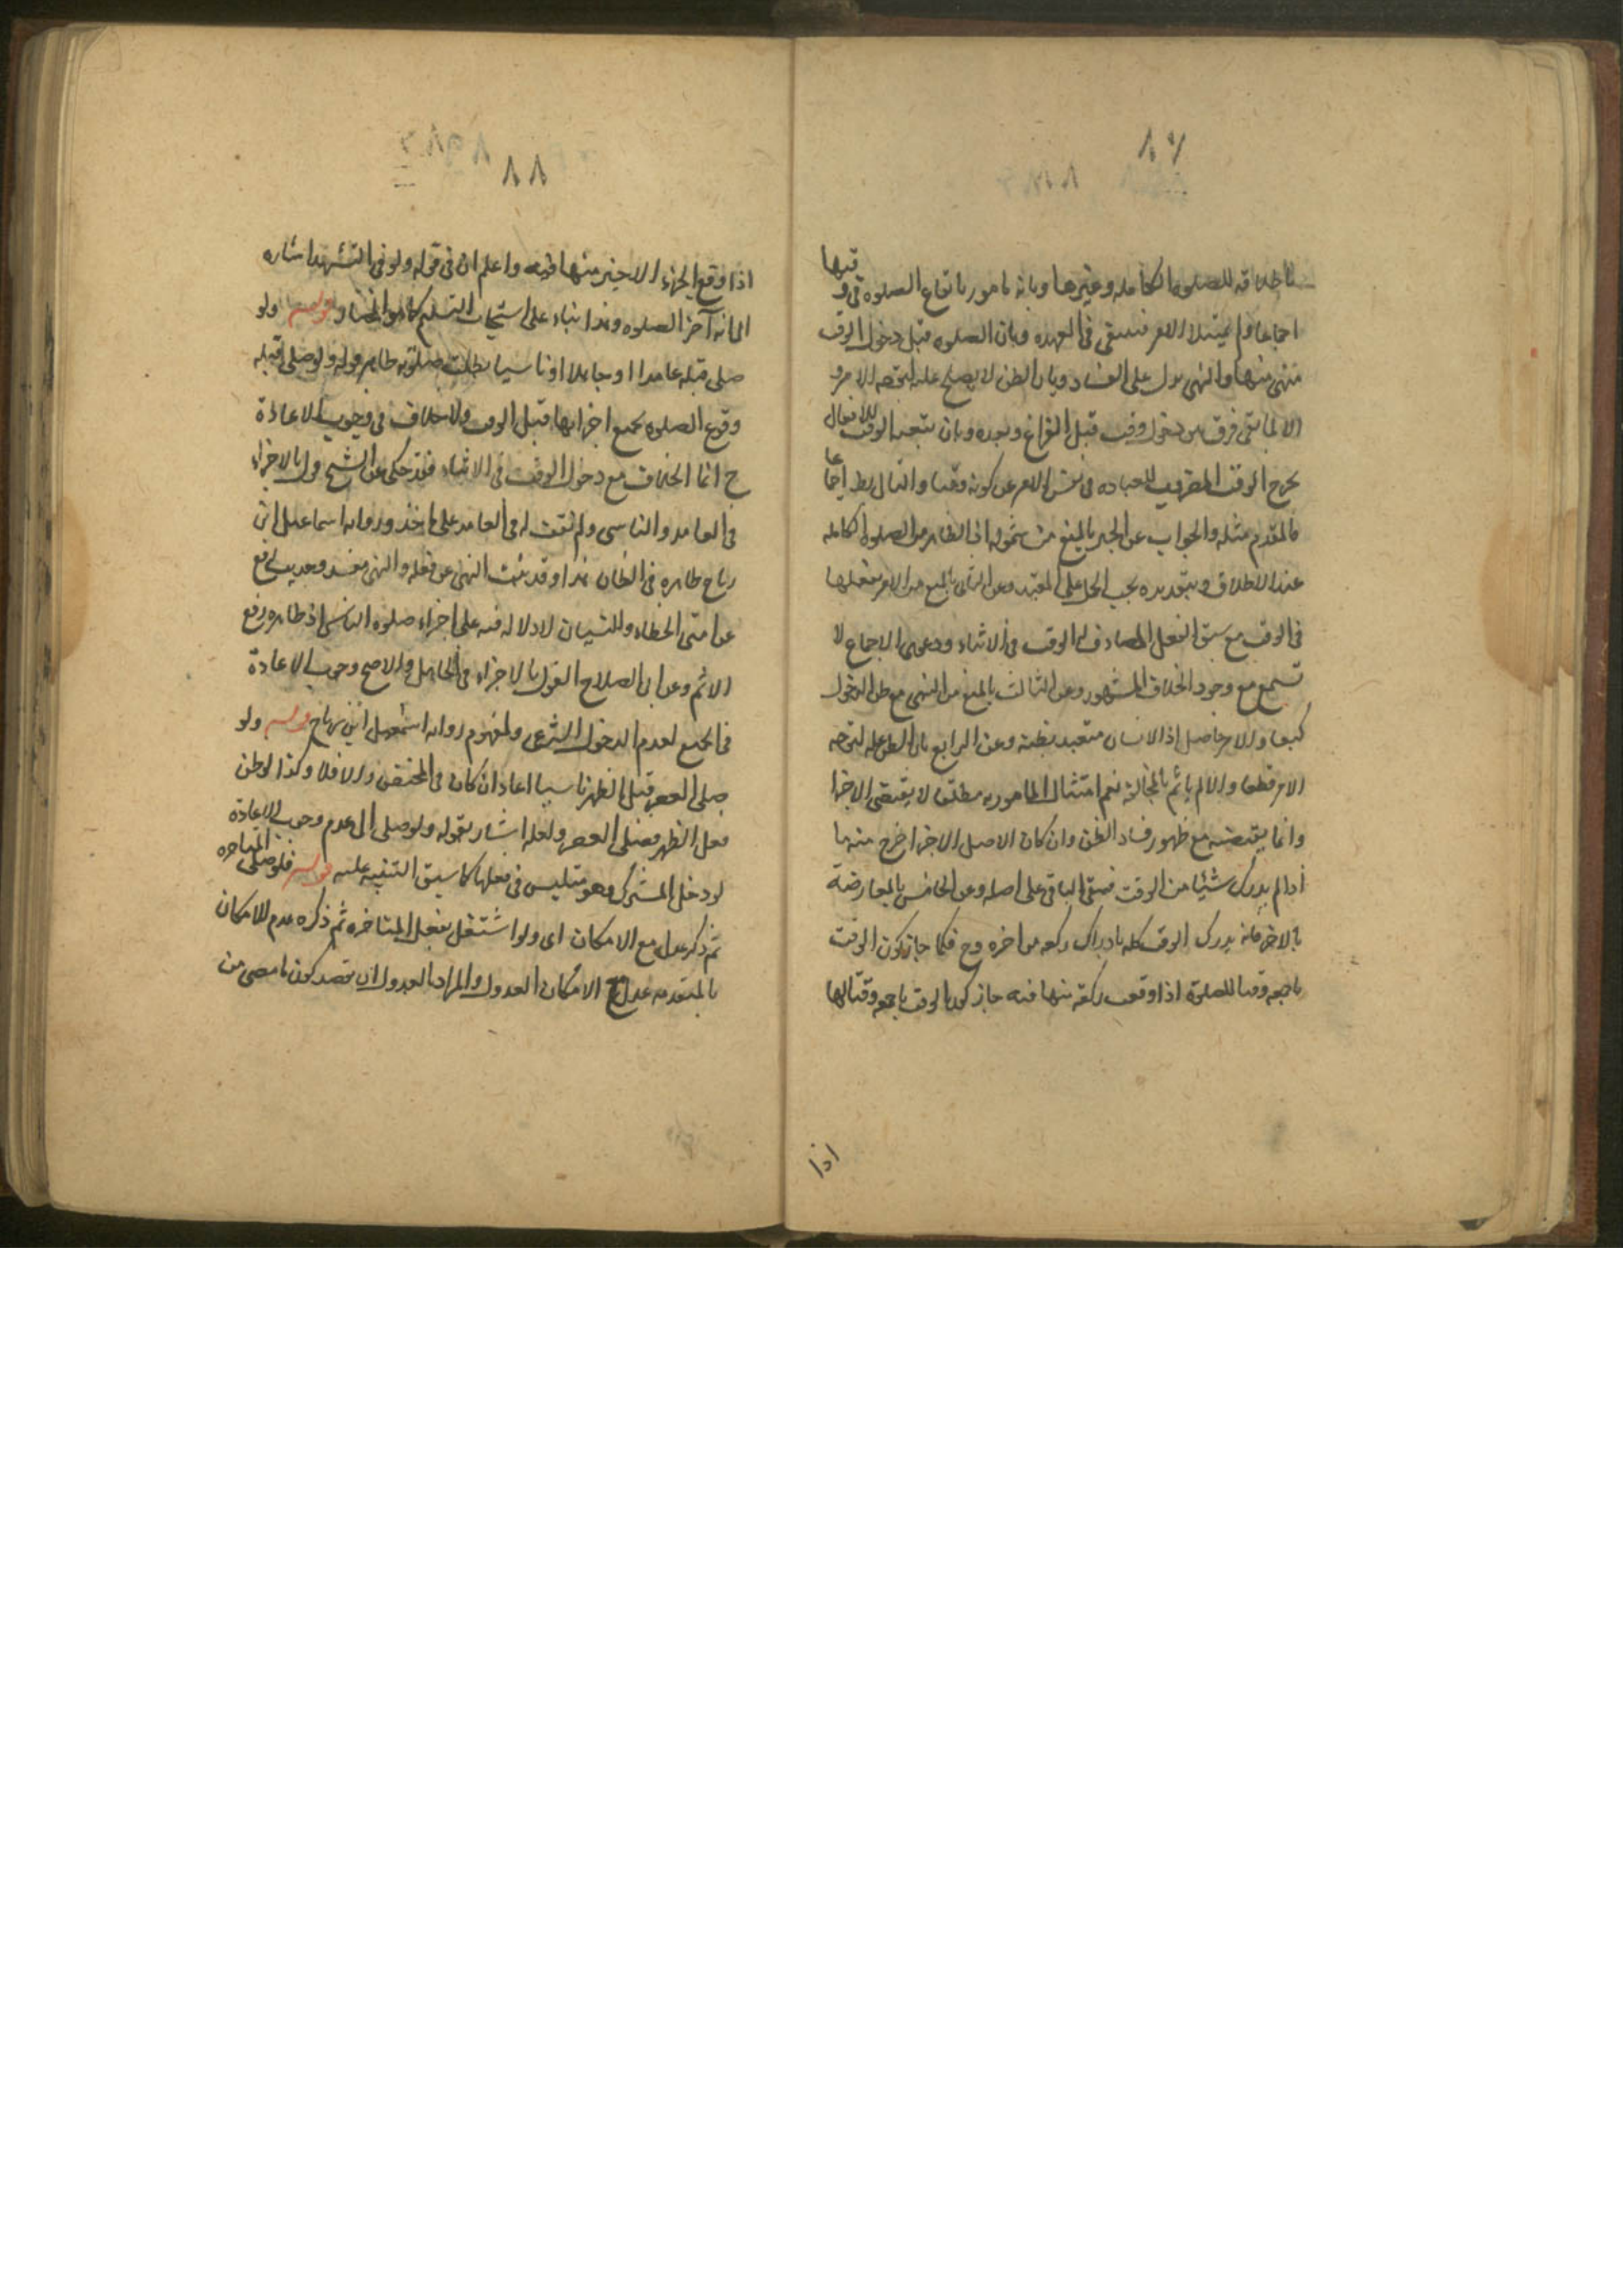 ٨٧
باطلاقه للصلوة الكامله وغيرها وبانه مامور بايقاع الصلوه فى وقتها
اجماعا ولم يمتثل الامر فيبقى فى العهده وبان الصلوه قبل دخول الوقت
منهى عنها والنهى يدل على الفساد وبان الظن لا يصلح علة لتوجه الامر و
الا لما بقى فرق بين دخول وقت قبل الفراغ وبعده وبان تتبعه الوقت للافعال
يخرج الوقت المضروب للعباده فى نفس الامر عن كونه وقتا والتالى بط اجماعا
فالمقدم مثله والجواب عن الخبر بالمنع من شموله اذ الظاهر هو الصلوة الكامله
عند الاطلاق وبتقديره يجب الحمل على المقيد وعن الثانى بالمنع من الامر بفعلها
فى الوقت مع سبق الفعل المصادف للوقت فى الاثناء ودعوى الاجماع لا
تسمع مع وجود الخلاف المشهور وعن الثالث بالمنع من النهى مع ظن الدخول
كيف والامر حاصل اذ الانسان متعبد بظنه وعن الرابع بان الظن علة لتوجه
الامر قطعا والا لم ياثم بالمخالفة نعم امتثال المامور به مطلقا لا يقتضى الاجزا
وانما يقتضيه مع ظهور فساد الظن وان كان الاصل الاجزا خرج منه ما
اذا لم يدرك شيئا من الوقت فبقى الباقى على اصله وعن الخامس بالمعارضة
بالاخر فانه يدرك الوقت كله بادراك ركعه من اخره وح فكما جاز كون الوقت
باجمعه وقتا للصلوة اذا وقعت ركعة منها فيه جاز كون الوقت باجمعه وقتا لها
اذا
٨٨
اذا وقع الجزء الاخير منها فيه واعلم ان فى قوله ولو فى التشهد اشاره
الى انه آخر الصلوه وهذا بناء على استحباب التسليم كما هو المختار قوله ولو
صلى قبله عامدا او جاهلا او ناسيا بطلت صلوته ظاهر قوله ولو صلى قبله
وقوع الصلوه بجميع اجزائها قبل الوقت ولا خلاف فى وجوب الاعادة
ح انما الخلاف مع دخول الوقت فى الاثناء فقد حكى عن الشيخ القول بالاجزاء
فى العامد والناسى ولم نقف له فى العامد على ماخذ ورواية اسماعيل ابن
رباح ظاهره فى الظان هذا وقد ثبت النهى عن فعله والنهى مفسد وحديث رفع
عن امتى الخطاء والنسيان لا دلاله فيه على اجزاء صلوه الناسى اذ ظاهره رفع
الاثم وعن ابى الصلاح القول بالاجزاء فى الجاهل والاصح وجوب الاعادة
فى الجميع لعدم الدخول الشرعى ولمفهوم رواية اسمعيل ابن رباح قوله ولو
صلى العصر قبل الظهر ناسيا اعاد ان كان فى المختص والا فلا وكذا لو ظن
فعل الظهر فصلى العصر ولعله اشار بقوله ولو صلى الى عدم وجوب الاعادة
لو دخل المشترك وهو متلبس فى فعلها كما سبق التنبيه عليه قوله فلو صلى المتاخره
ثم ذكر عدل مع الامكان اى ولو اشتغل بفعل المتاخره ثم ذكره عدم الامكان
بالمتقدمه عدل مع الامكان العدول والمراد بالعدول ان يقصد كون ما مضى من